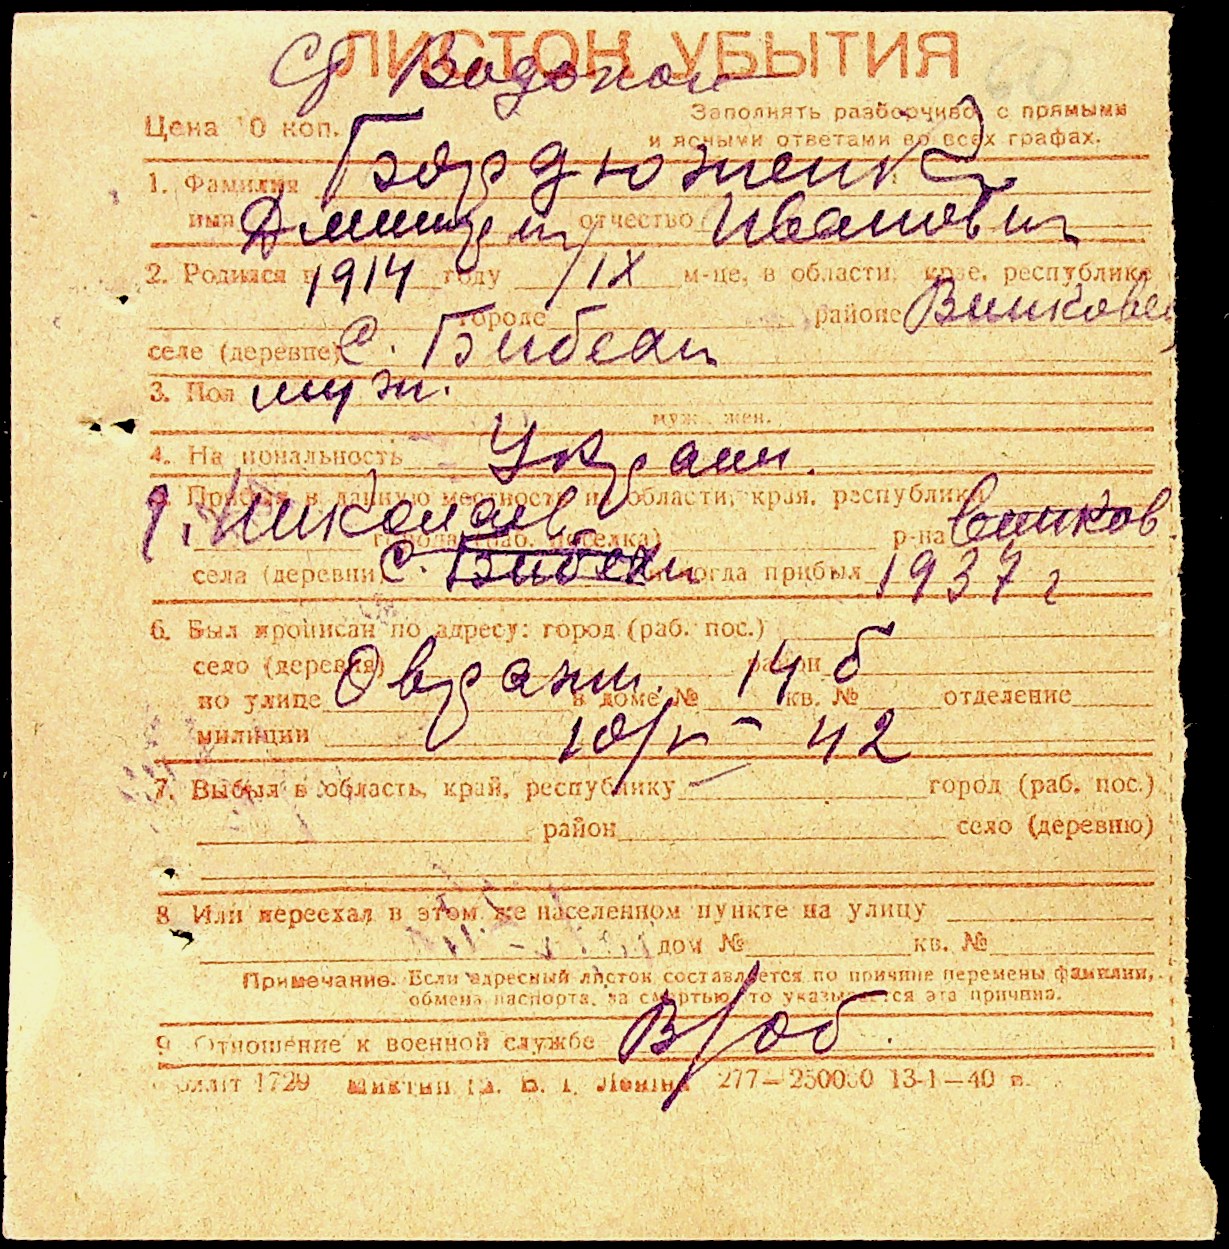 ЛИСТОК УБЫТИЯ
Ср Водопой
60
Заполнять разборчиво с прямыми
и ясными ответами во всех графах.
Цена 10 коп.
1. Фамилия Бордюженко
имя Дмитрий отчество Иванович
2. Родился в 1914 году /IX м-це, в области, крае, республике
городе районе Винковец
селе (деревне) С. Бибехи
3. Пол муж.
муж. жен.
4. Национальность Украин.
Прибыл в данную местность из области, края, республики
г. Николаев
города (раб. поселка) р-на Винков
села (деревни) С. Бибехи когда прибыл 1937 г
6. Был прописан по адресу: город (раб. пос.)
село (деревня) район
по улице Овражн. в доме № 14 б кв. № отделение
милиции 10/V - 42
7. Выбыл в область, край, республику город (раб. пос.)
район село (деревню)
8. Или переехал в этом же населенном пункте на улицу
дом № кв. №
Примечание. Если адресный листок составляется по причине перемены фамилии,
обмена паспорта, за смертью, то указывается эта причина.
9. Отношение к военной службе В/об.
1729 277—250000 13-1—40 в.